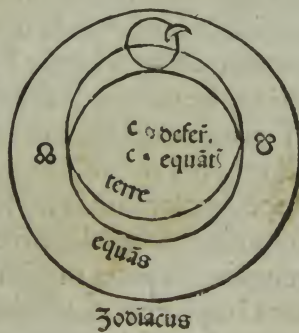 c defer̄.
c equāt̄
terre
equās
Zodiacus